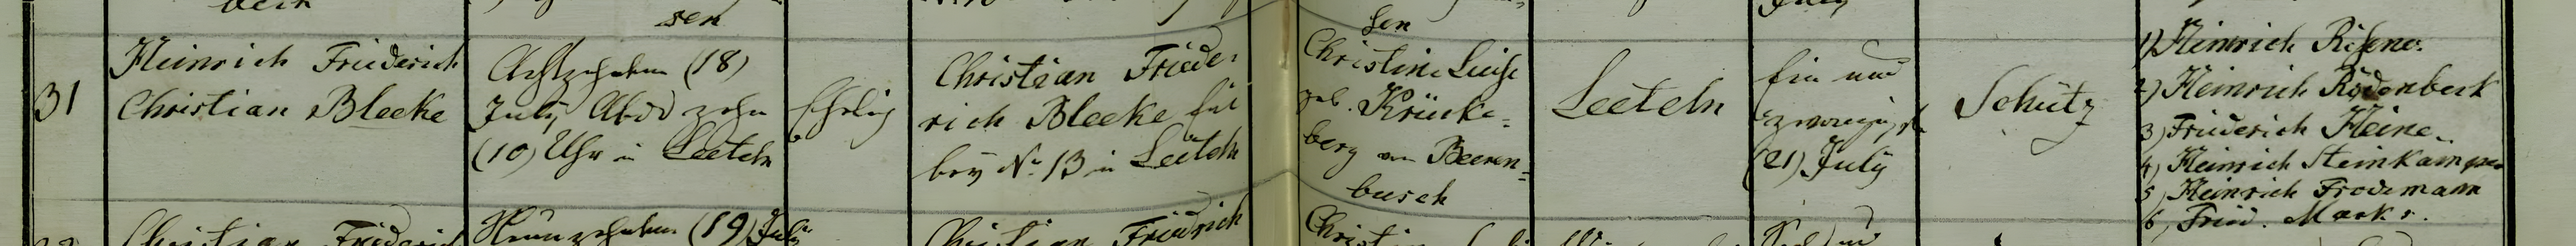 sen
31
Heinrich Friederich
Christian Bleeke
Achtzehnten (18)
July Abds zehn
(10) Uhr in Leeteln
Ehelig
Christian Friede-
rich Bleeke
bey No. 13 in Leeteln
sen
Christine Luise
geb. Krücke-
berg von Beeren-
busch
Leeteln
Ein und
zwanzigst
(21) July
Schütz
1) Heinrich
2) Heinrich Rödenbeck
3) Friederich Heine
4) Heinrich Steinkämper
5) Heinrich Frodemann
6, Fried.
Christian Friederich
Neunzehnten (19) July
Christian Friedrich